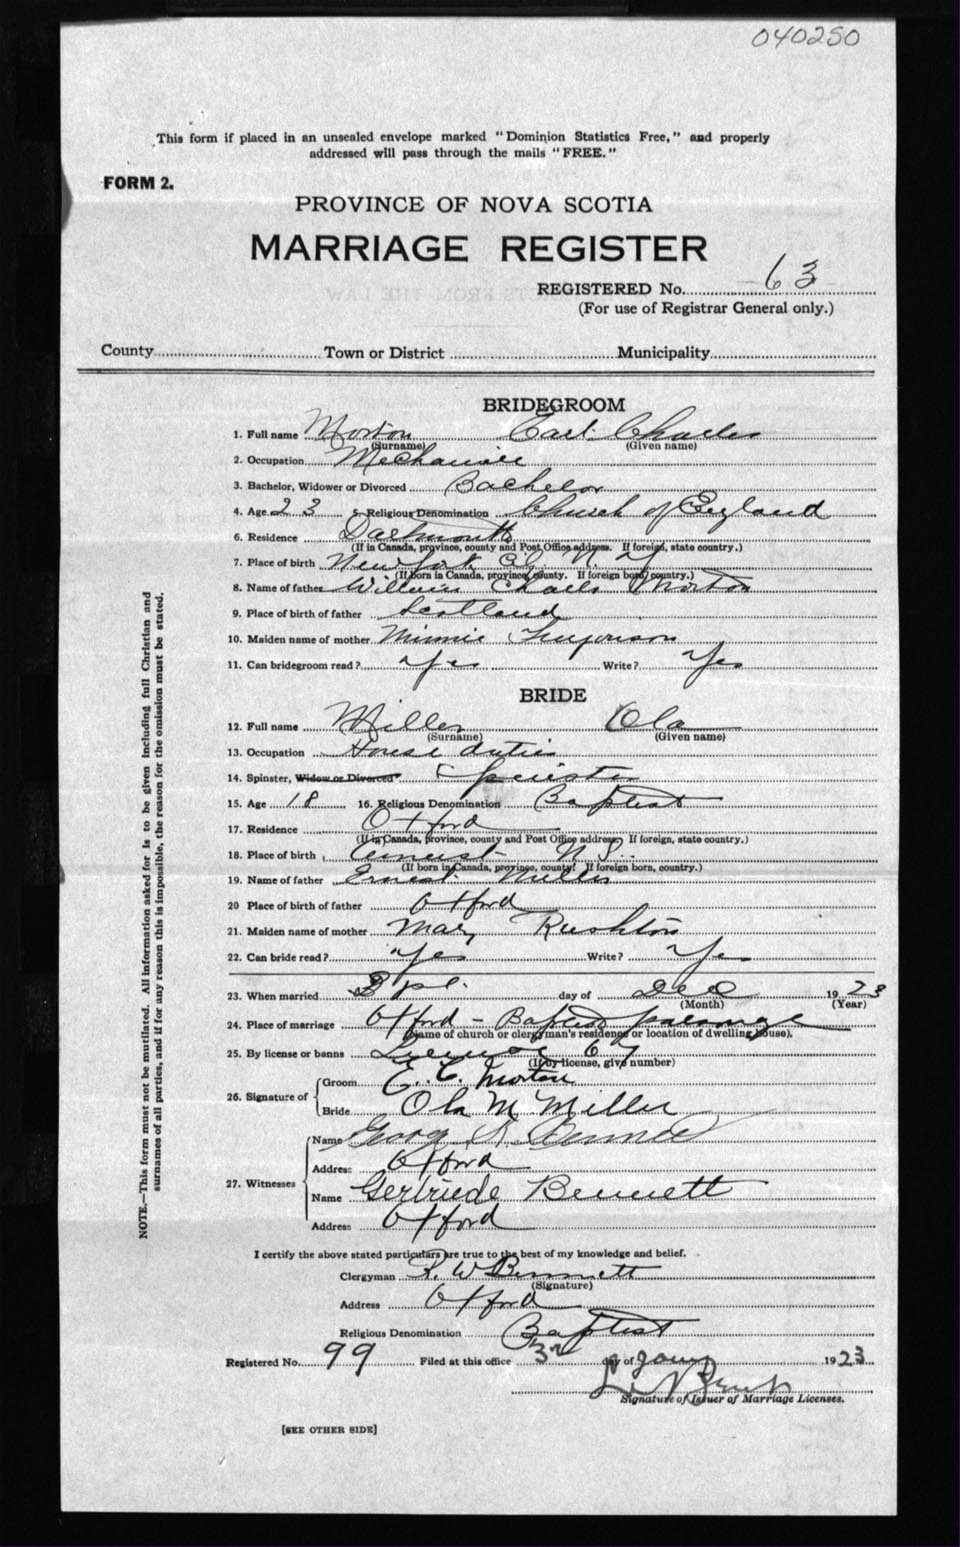 040250
This form if placed in an unsealed envelope marked "Dominion Statistics Free," and properly
addressed will pass through the mails "FREE."
FORM 2.
PROVINCE OF NOVA SCOTIA
MARRIAGE REGISTER
REGISTERED No. 63
(For use of Registrar General only.)
County Town or District Municipality
BRIDEGROOM
1. Full name Morton Earl Charles
(Surname) (Given name)
2. Occupation Mechanic
3. Bachelor, Widower or Divorced Bachelor
4. Age 23 5. Religious Denomination Church of England
6. Residence Dartmouth
(If in Canada, province, county and Post Office address. If foreign, state country.)
7. Place of birth New York N. Y.
(If born in Canada, province, county. If foreign born, country.)
8. Name of father William Charles Morton
9. Place of birth of father Scotland
10. Maiden name of mother Minnie
11. Can bridegroom read? Yes Write? Yes
BRIDE
12. Full name Miller Ola
(Surname) (Given name)
13. Occupation House duties
14. Spinster, Widow or Divorced Spinster
15. Age 18 16. Religious Denomination Baptist
17. Residence Oxford
(If in Canada, province, county and Post Office address. If foreign, state country.)
18. Place of birth Amherst N. S.
(If born in Canada, province, county. If foreign born, country.)
19. Name of father Ernest Miller
20 Place of birth of father Oxford
21. Maiden name of mother Mary Rushton
22. Can bride read? Yes Write? Yes
23. When married day of Dec 1923
(Month) (Year)
24. Place of marriage Oxford - Baptist parsonage
(Name of church or clergyman's residence or location of dwelling house).
25. By license or banns License 67
(If by license, give number)
26. Signature of Groom E. C. Morton
Bride Ola M Miller
27. Witnesses Name George Bennett
Address Oxford
Name Gertriede Bennett
Address Oxford
I certify the above stated particulars are true to the best of my knowledge and belief.
Clergyman R. W Bennett
(Signature)
Address Oxford
Religious Denomination Baptist
Registered No. 99 Filed at this office 3rd day of Jany 1923
Signature of Issuer of Marriage Licenses.
[SEE OTHER SIDE]
NOTE.—This form must not be mutilated. All information asked for is to be given including full Christian and
surnames of all parties, and if for any reason this is impossible, the reason for the omission must be stated.